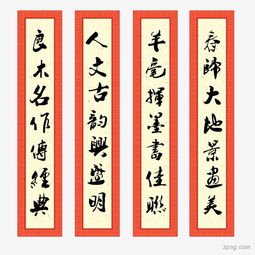 春歸大地景畫美
羊毫揮墨書佳聯
人文古韵興盛明
良木名作傳經典
3png.com